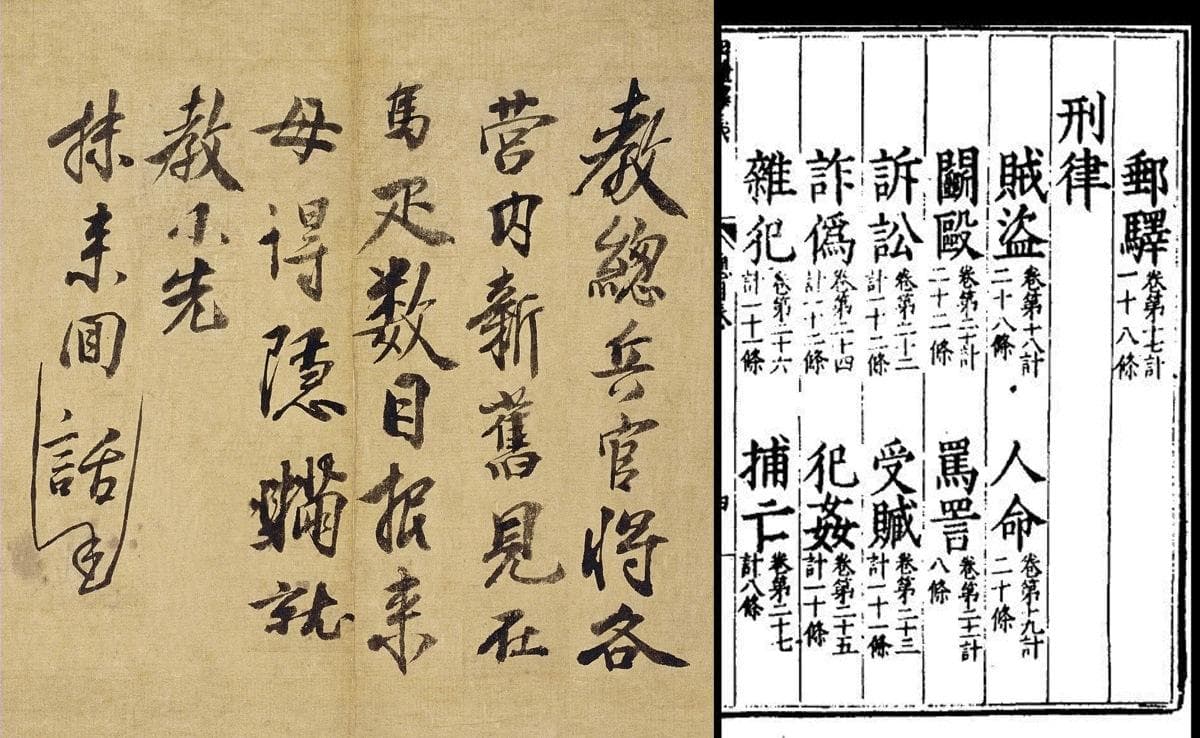 教總兵官將各
营内新舊見在
馬疋数目报来
毋得隱瞞就
教小先
抹来回話
郵驛 卷第十七計一十八條
刑律
賊盜 卷第十八計二十八條 人命 卷第十九計二十條
鬭毆 卷第二十計二十二條 罵詈 卷第二十一計八條
訴訟 卷第二十二計一十二條 受贓 卷第二十三計一十一條
詐偽 卷第二十四計一十二條 犯姦 卷第二十五計一十條
雜犯 卷第二十六計一十一條 捕亡 卷第二十七計八條